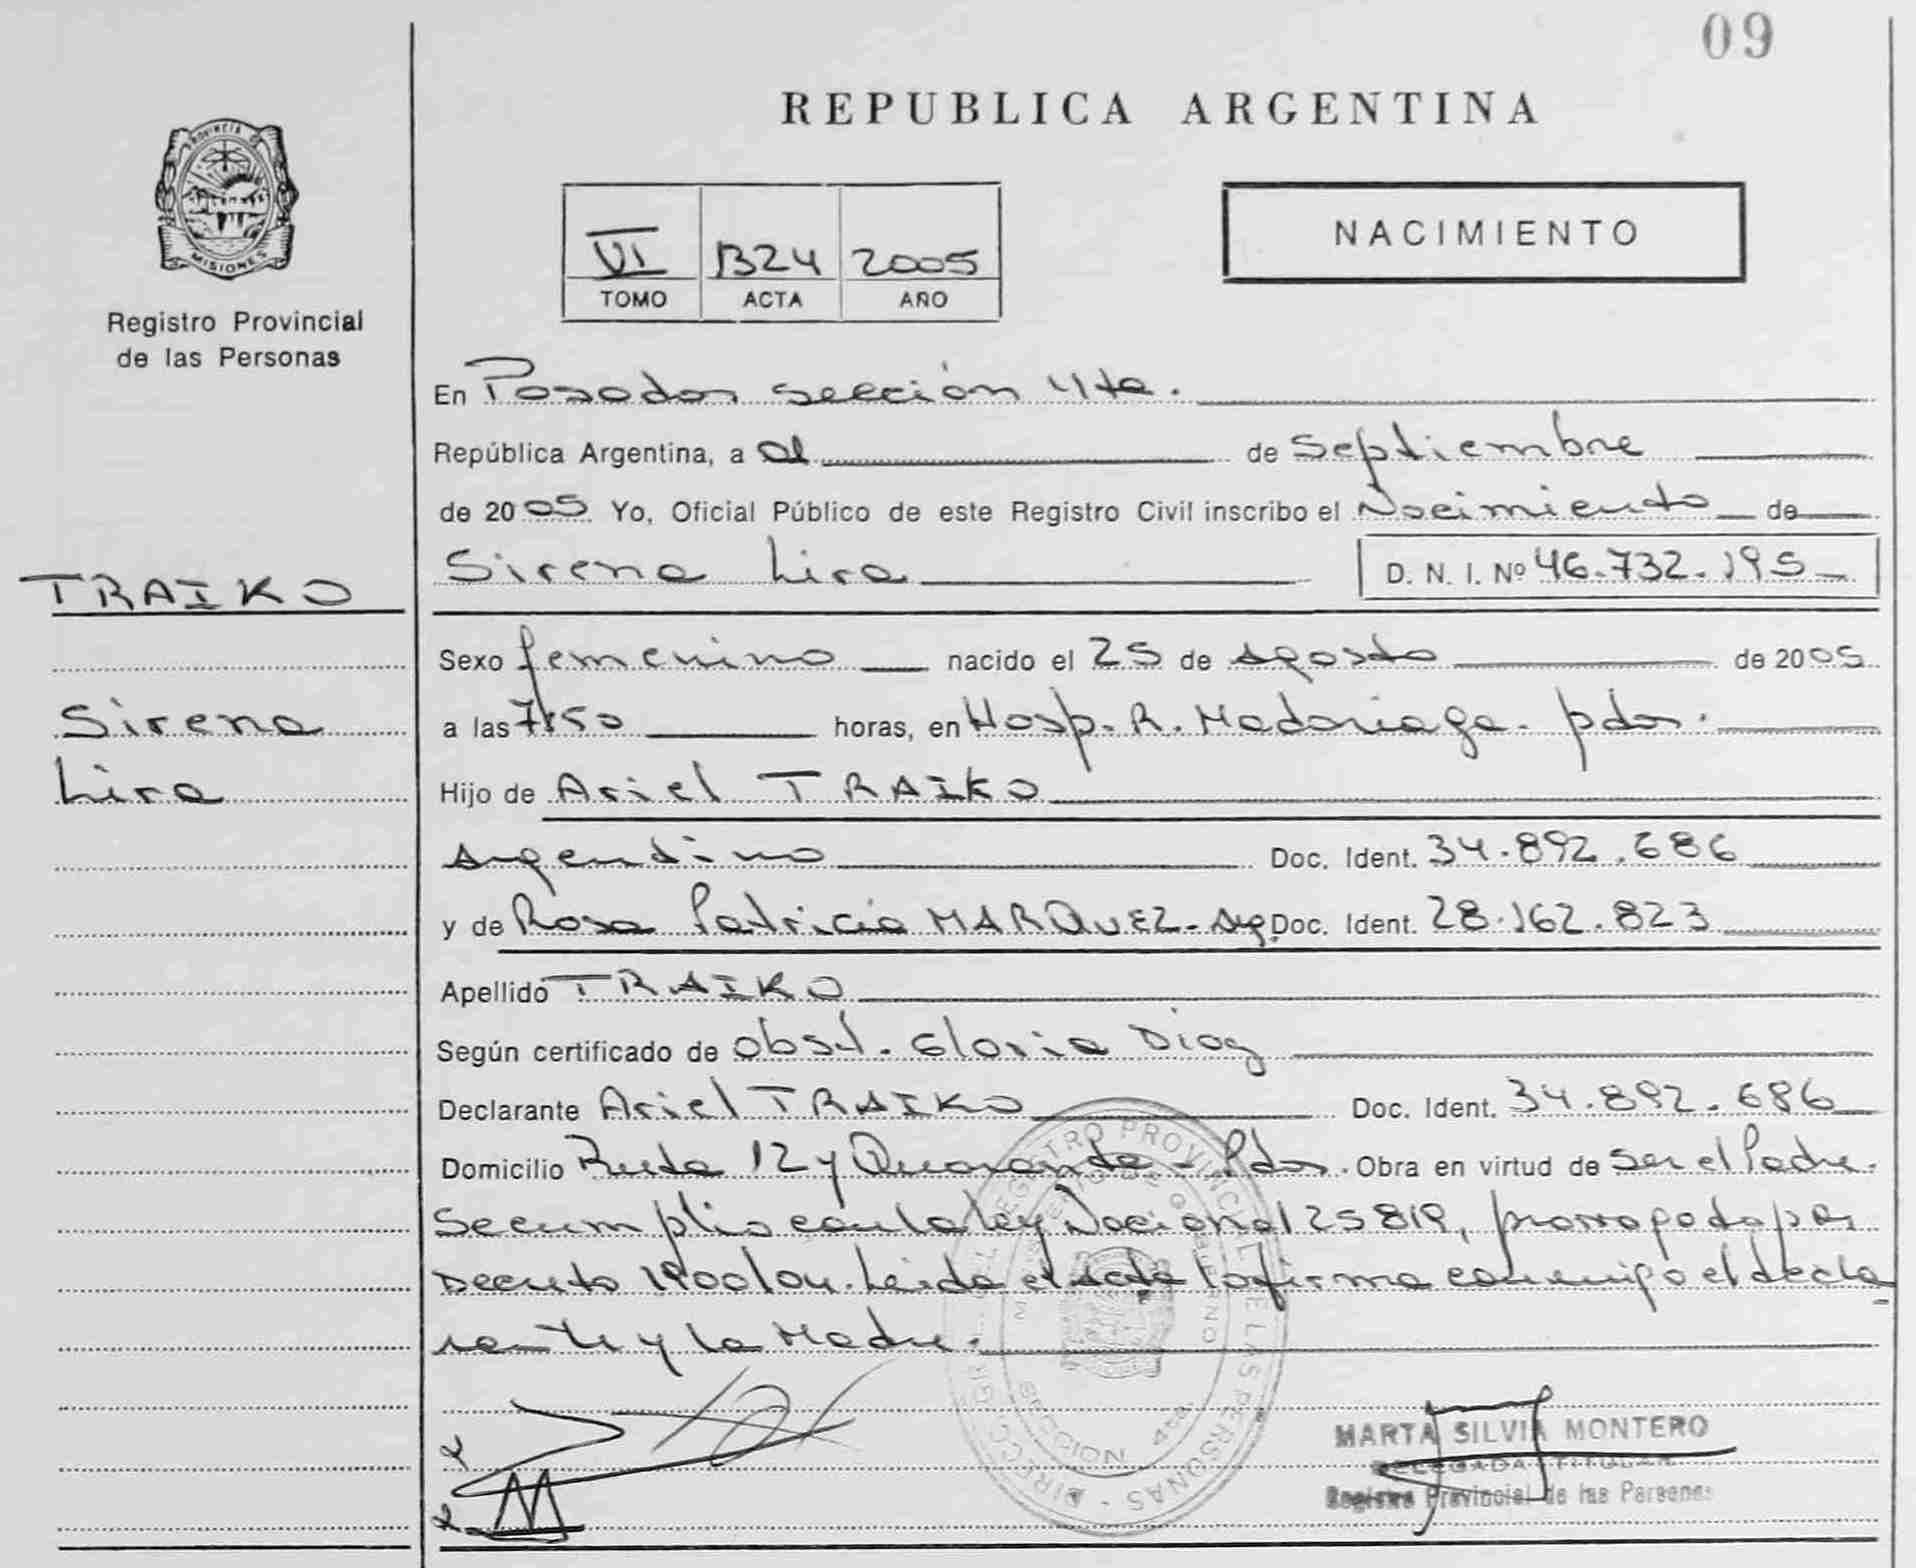 09
REPUBLICA ARGENTINA
PROVINCIA DE
MISIONES
Registro Provincial
de las Personas
VI 1324 2005
TOMO ACTA AÑO
NACIMIENTO
En Posadas sección 4ta.
República Argentina, a 01 de Septiembre
de 2005 Yo, Oficial Público de este Registro Civil inscribo el Nacimiento de
Sirena Lira D. N. I. Nº 46.732.195
TRAIKO
Sirena
Lira
Sexo femenino nacido el 25 de Agosto de 2005
a las 7:50 horas, en Hosp. R. Madariaga - pdas.
Hijo de Ariel TRAIKO
Argentino Doc. Ident. 34.892.686
y de Rosa Patricia MARQUEZ - Arg. Doc. Ident. 28.162.823
Apellido TRAIKO
Según certificado de obst. Gloria Diaz
Declarante Ariel TRAIKO Doc. Ident. 34.892.686
Domicilio Ruta 12 y Quaranta - Pdas. Obra en virtud de ser el Padre.
Se cumplio con la ley Nacional 25819, prorrogada por
Decreto 1900/04. Leida el acta la firma conmigo el decla
rante y la Madre.
DIRECC. GRAL. DEL REGISTRO PROVINCIAL DE LAS PERSONAS
SECCION 4ta.
MARTA SILVIA MONTERO
DELEGADA TITULAR
Registro Provincial de las Personas